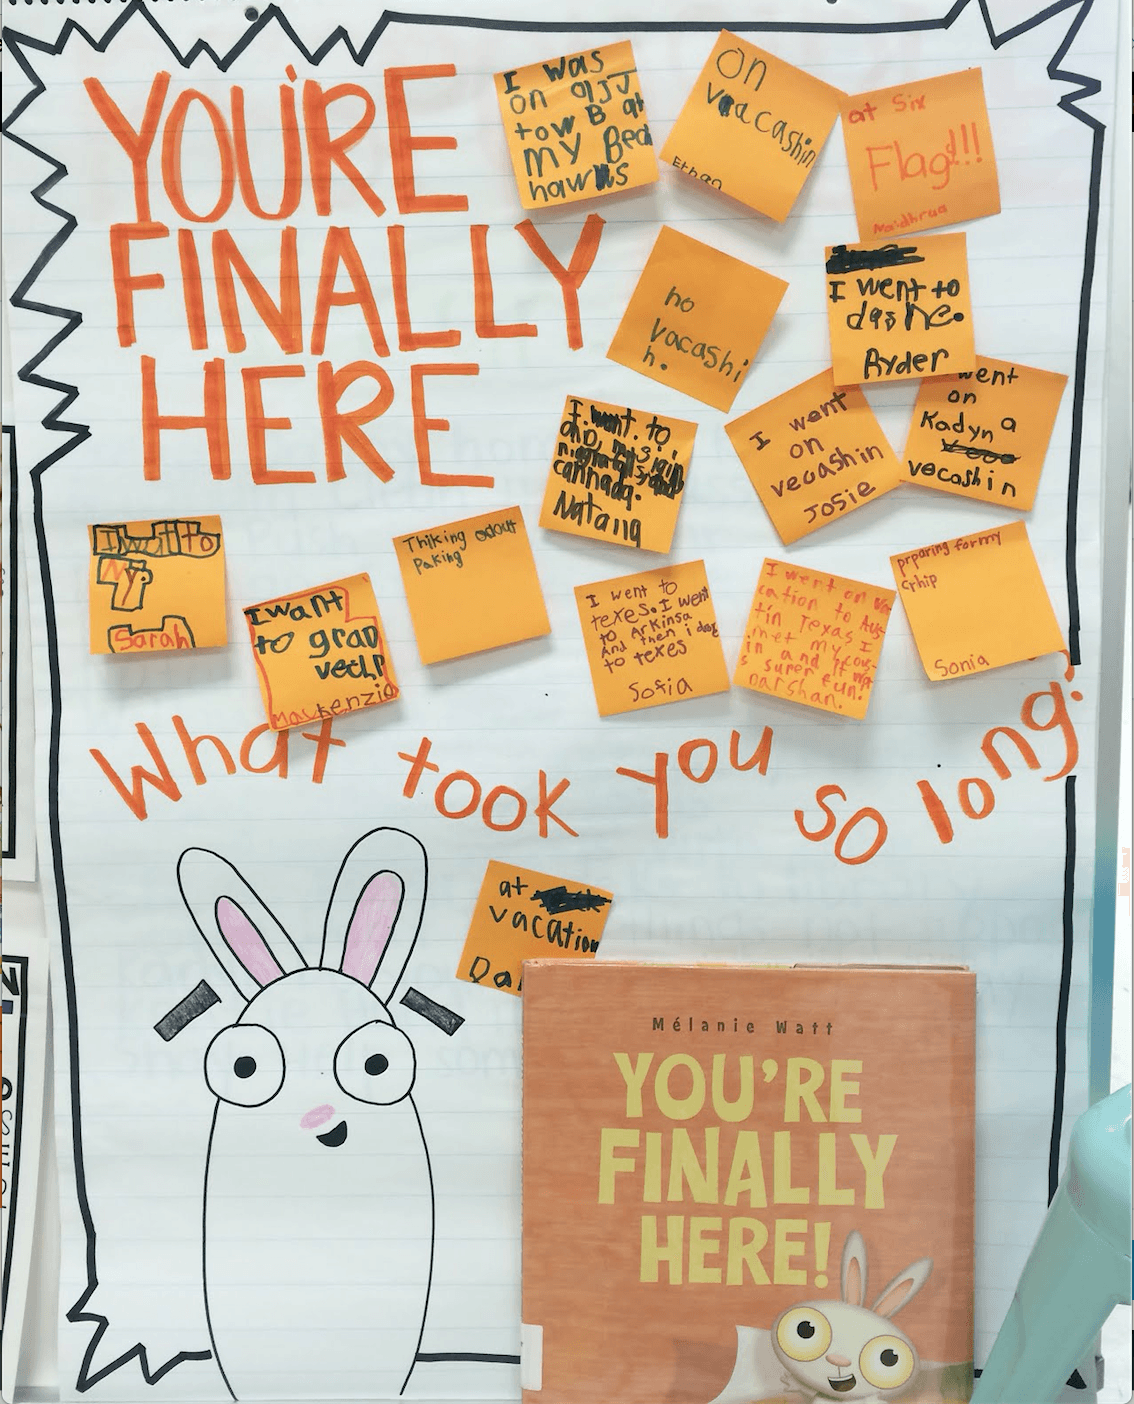 YOU'RE
FINALLY
HERE
I was
on
tow B at
my Bed
hawrs
On
vacashin
Ethan
at Six
Flags!!!
Maidhrua
no
vacashi
n.
I went to
dashe.
Ryder
went
on
Kadyn a
vecashin
I went
on
vecashin
Josie
I went to
cannada.
I want to
My
Sarah
I want
to grad
Mackenzie
Thiking about
Paking
I went to
texes. I went
to Arkinsa
And then i
to texes
Sofia
I went on va
cation to Aus-
tin Texas I
met my cous-
in and it wa
s super fun.
Darshan.
prparing for my
Sonia
What took you so long?
at
vacation
Mélanie Watt
YOU'RE
FINALLY
HERE!